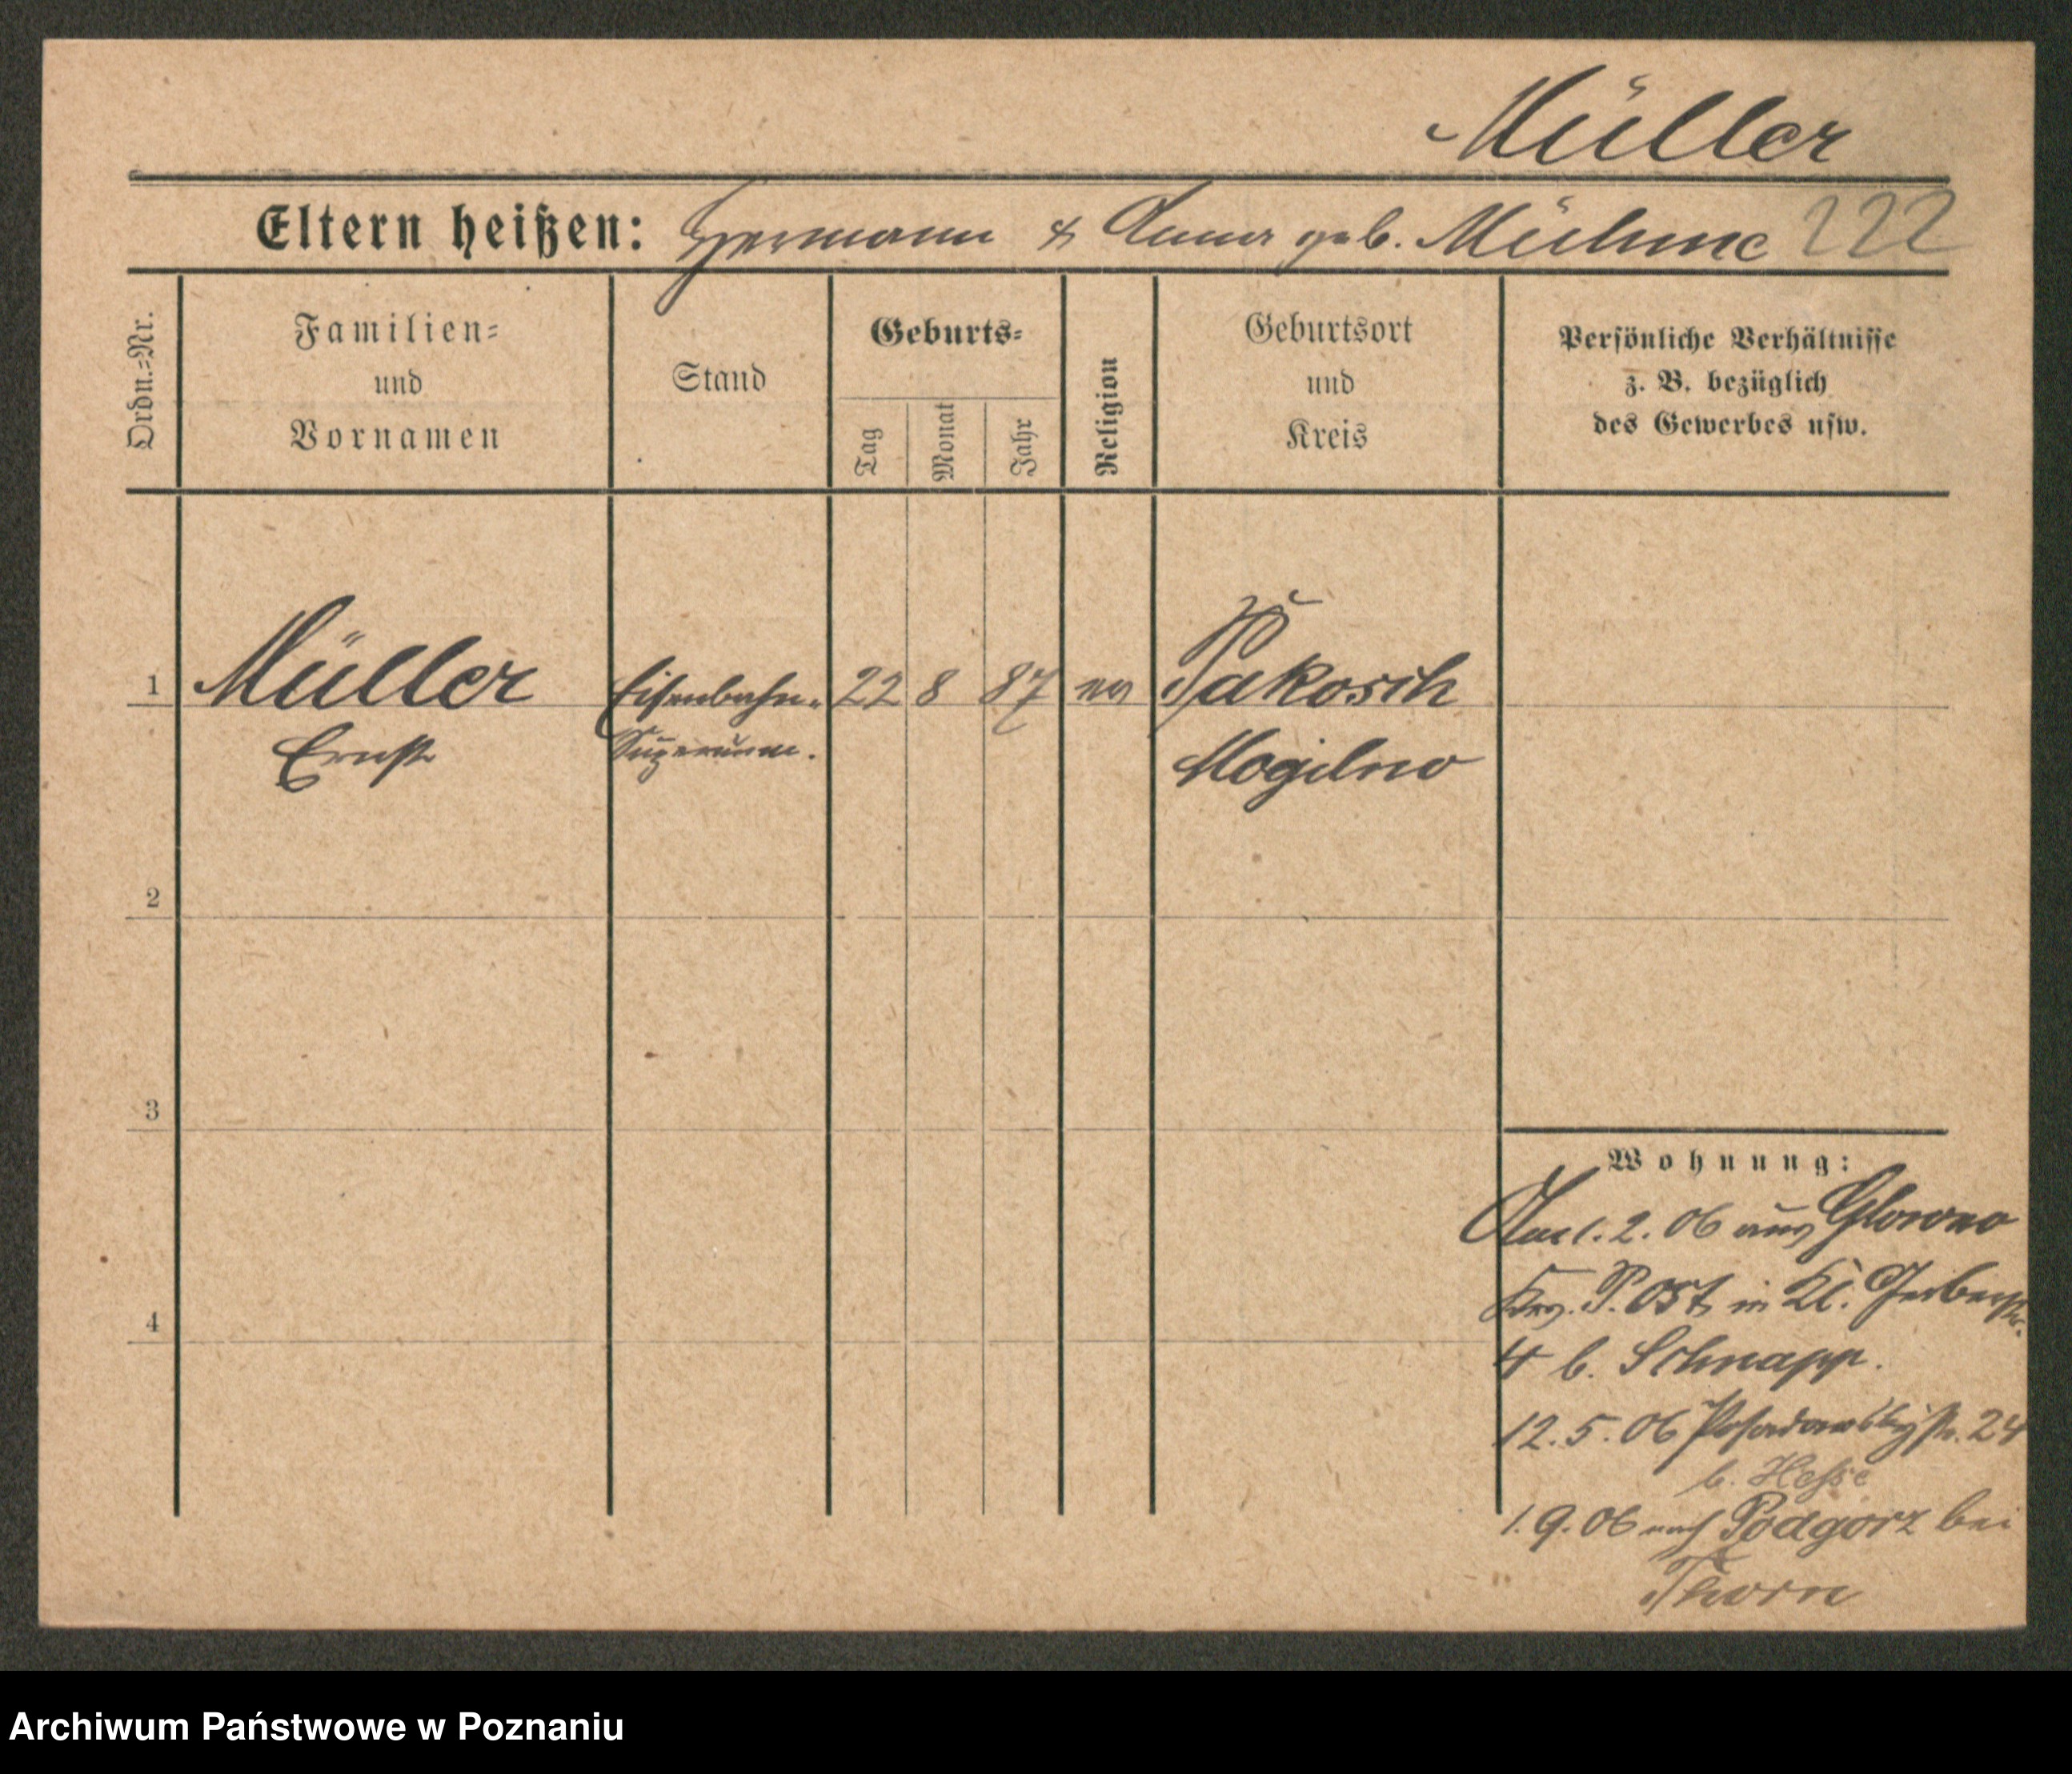 Müller
Eltern heißen: Hermann & Anna geb. Mühme 222
Ordn.=Nr.
Familien=
und
Vornamen
Stand
Geburts=
Tag
Monat
Jahr
Religion
Geburtsort
und
Kreis
Persönliche Verhältnisse
z. B. bezüglich
des Gewerbes usw.
1 Müller Eisenbahn- 22 8 87 ev Pakosch
Ernst Supernum. Mogilno
2
3
4
Wohnung:
1. 2. 06 aus Glowno
Krs. P. Ost in Kl. Gerberstr.
4 b. Schnapp.
12. 5. 06 Posadowskystr. 24
b. Hesse
1. 9. 06 nach Podgorz bei
Thorn
Archiwum Państwowe w Poznaniu